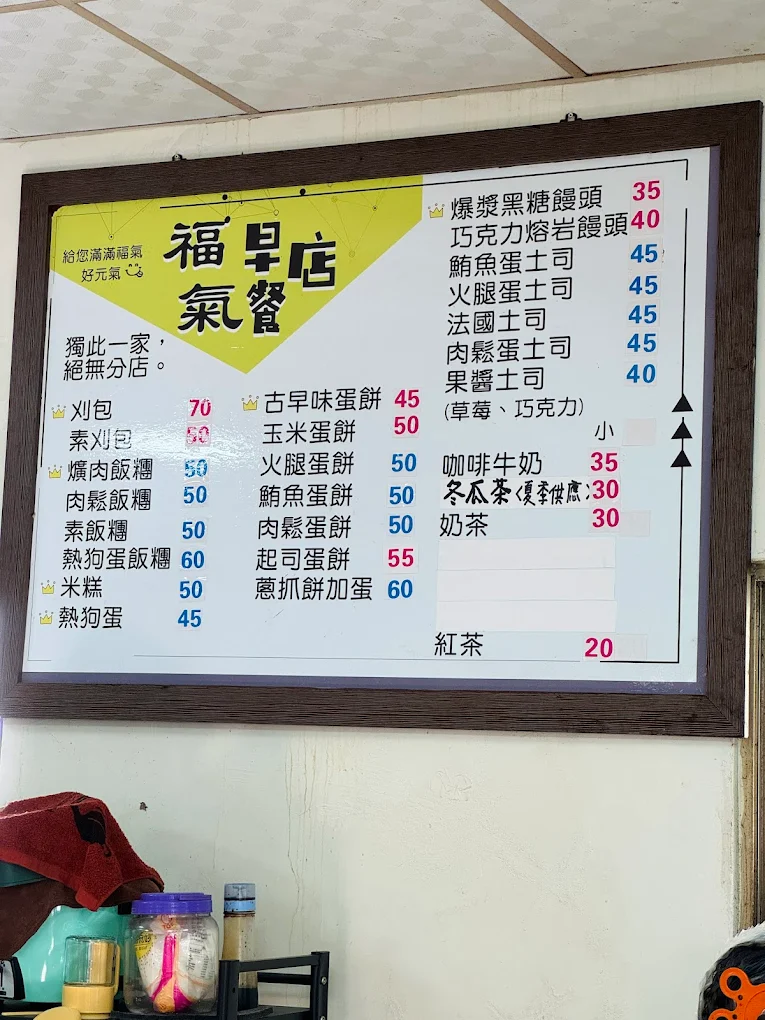 給您滿滿福氣
好元氣
福氣早餐店
獨此一家，
絕無分店。
刈包 70
素刈包 50
爌肉飯糰 50
肉鬆飯糰 50
素飯糰 50
熱狗蛋飯糰 60
米糕 50
熱狗蛋 45
古早味蛋餅 45
玉米蛋餅 50
火腿蛋餅 50
鮪魚蛋餅 50
肉鬆蛋餅 50
起司蛋餅 55
蔥抓餅加蛋 60
爆漿黑糖饅頭 35
巧克力熔岩饅頭 40
鮪魚蛋土司 45
火腿蛋土司 45
法國土司 45
肉鬆蛋土司 45
果醬土司 40
(草莓、巧克力)
小
咖啡牛奶 35
冬瓜茶(夏季供應) 30
奶茶 30
紅茶 20